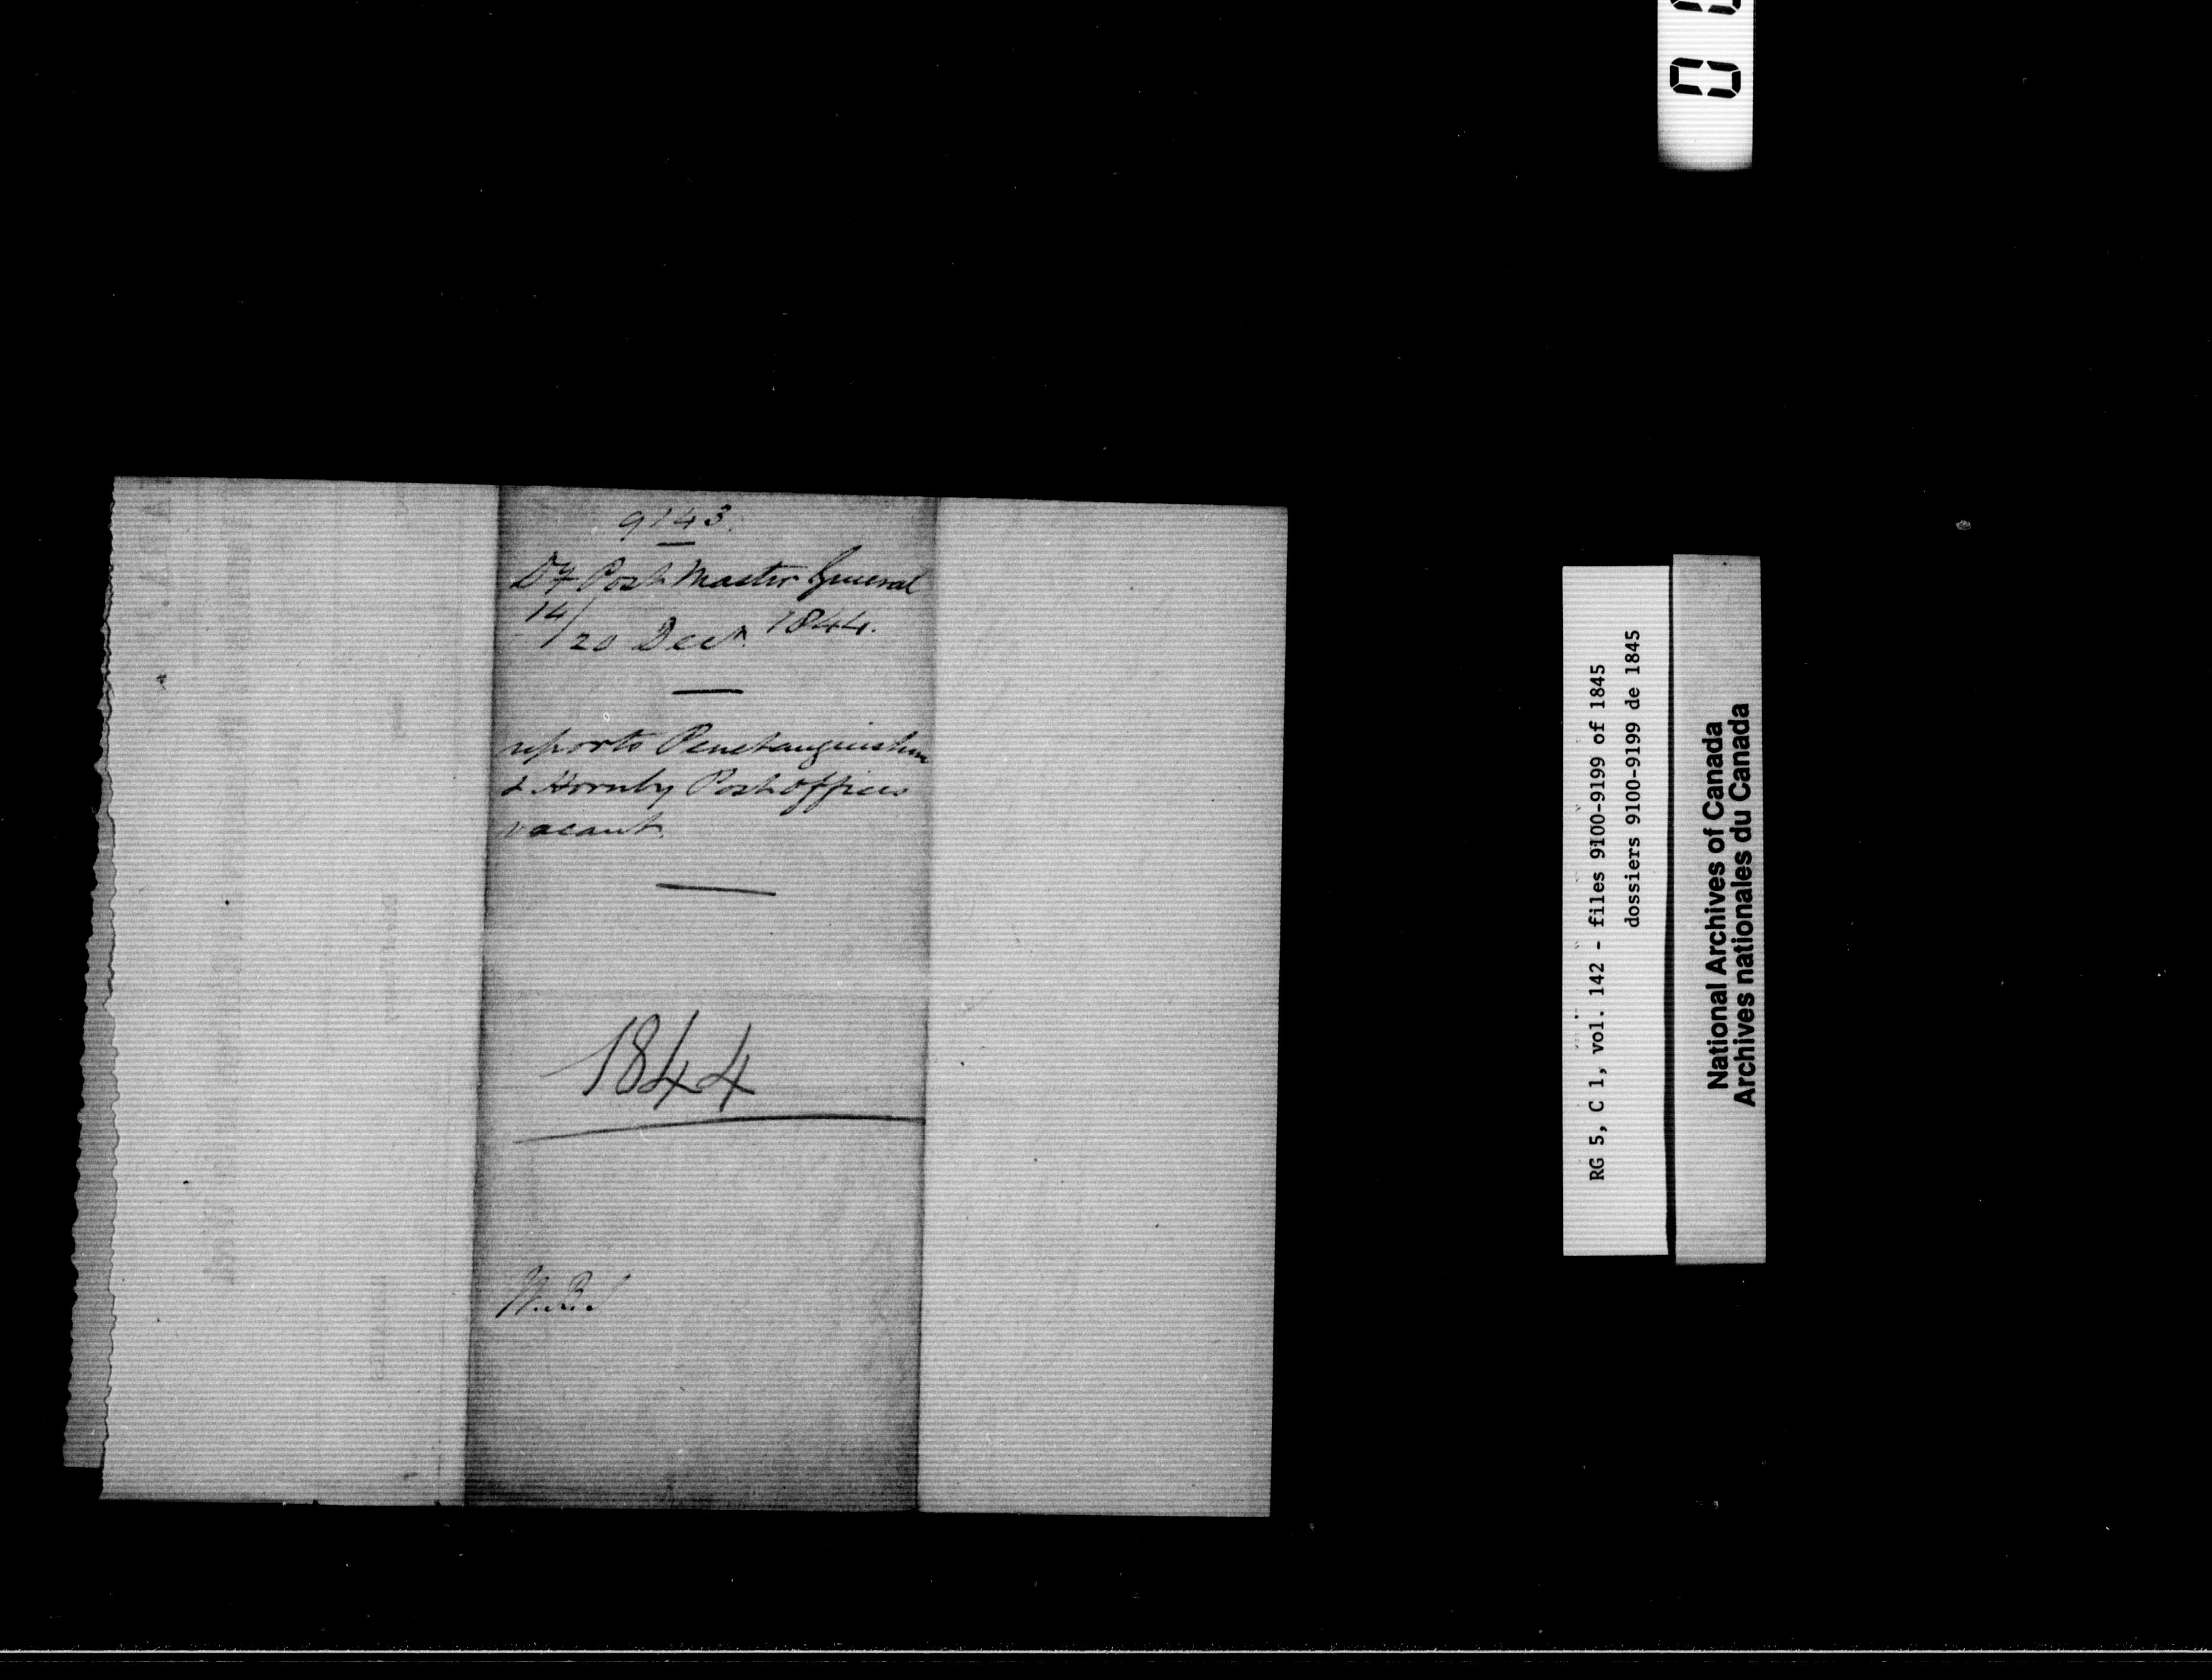 9143.
Dy Post Master General
14/20 Decr. 1844.
reports Penetanguishene
& Hornby Post offices
vacant.
1844
RG 5, C 1, vol. 142 - files 9100-9199 of 1845
dossiers 9100-9199 de 1845
National Archives of Canada
Archives nationales du Canada